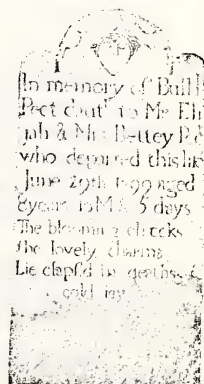 In memory of
Pect daut' to Mr Eli
jah & Mrs Bettey
who departed this life
June 29th aged
8 years 10 M & 5 days
The blooming cheeks
the lovely charms
Lie clasp'd in
cold icy